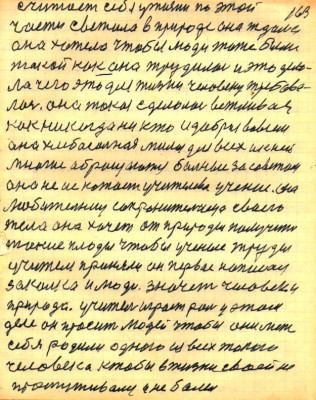 163
считает себя ушами по этой
части светила в природе она ждала
она хотела чтобы люди тоже были
такой как она трудилась и это дела-
ла чего это для жизни человеку требова-
лось. она такая сделалась вежливая
как никогда ни кто и добры вовсем
она небасолная мила для всех и к ней
многие обращают больные за советом
она не испытает учителева учение. она
любительниц сохранительница своего
тела она хочет от природы получити
такие плоды чтобы ученые труды
учителя приняли он первое написал
закалка и люди. значит человеки
природа. учитель играет роль у этом
деле он просит людей чтобы они мне
себя родили одного из всех такого
человека. чтобы в жизни своей не
простуживалися не болел